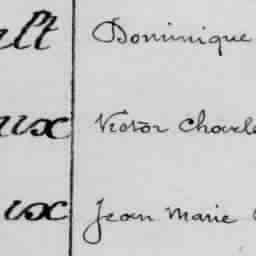 lt Dominique
ux Victor Charle
ux Jean Marie